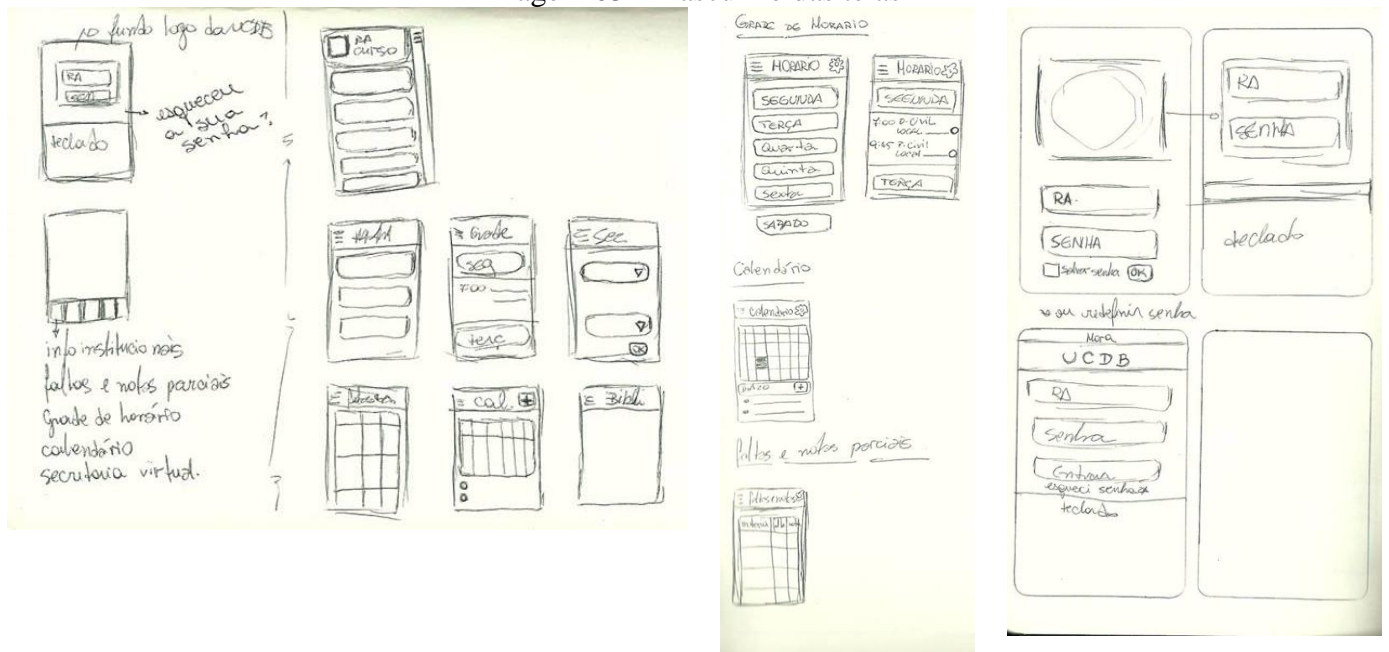 no fundo logo da UCDB
RA
sen
esqueceu
a sua
senha?
teclado
info institucionais
faltas e notas parciais
Grade de horário
calendário
secretaria virtual.
RA
curso
Grade
seg
7:00
terç
Sec.
OK
cal.
Bibli
GRADE DE HORARIO
HORARIO
SEGUNDA
TERÇA
Quarta
Quinta
Sexta
SABADO
HORARIO
SEGUNDA
7:00 D. CIVIL
LOCAL
9:45 P. Civil
Local
TERÇA
Calendário
calendario
faltas e notas parciais
RA.
SENHA
salvar senha OK
ou redefinir senha
RA
SENHA
teclado
Hora
UCDB
RA
senha
Entrar
esqueci senha
teclado